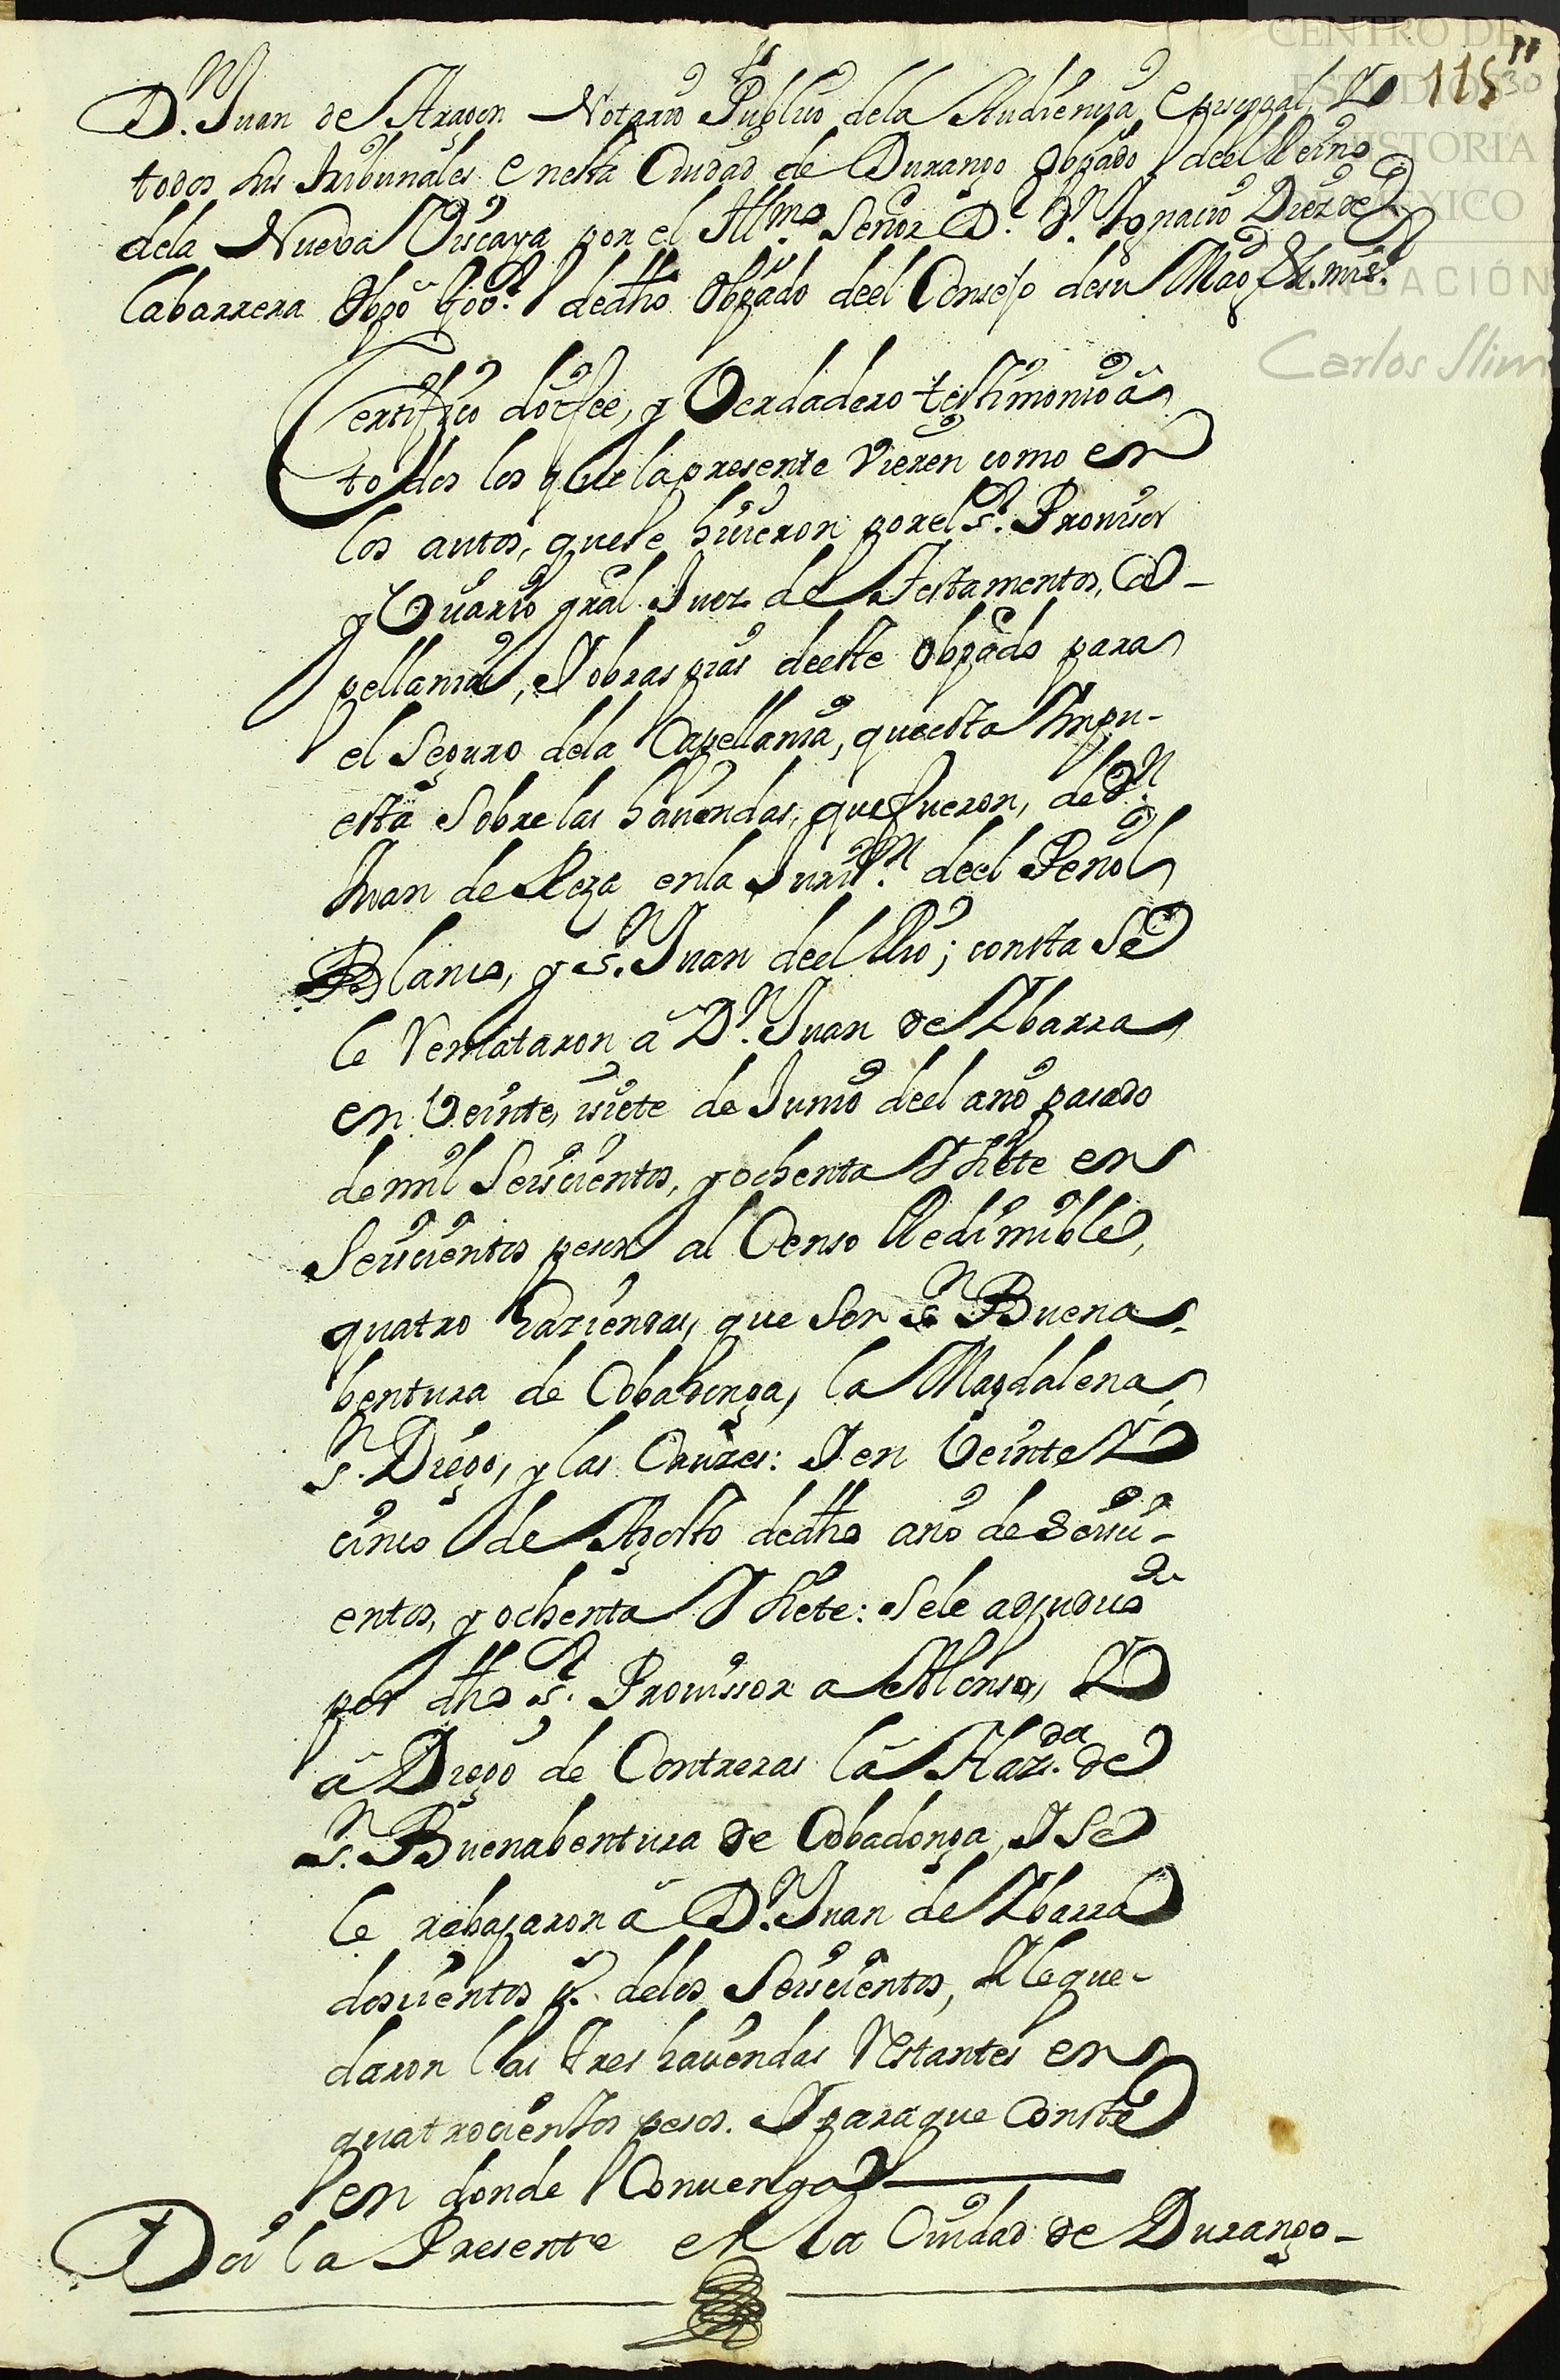 CENTRO DE
ESTUDIOS
DE HISTORIA
DE MEXICO
FUNDACIÓN
Carlos Slim
115
30
D.n Juan de Aragon Notario Publico dela Audiencia Episcopal, Y
todos sus tribunales enesta Ciudad de Durango Obpado deel Reino
dela Nueva Viscaya por el Illmo. Señor D.r D.n Ygnacio Diez de
la barrera Obpo dedho Obpado deel Consejo desu Magd. &. mi sr.
Certifico doi fee, y Verdadero testimonio â
todos los que la presente Vieren como en
los autos, quese hicieron por el S.r Provisor
y Vicario gral. Juez de Testamentos, Ca-
pellanias, Y obras pias deeste Obpado para
el Seguro dela Capellania, que esta Impu-
esta Sobre las haciendas, que fueron, de D.n
Juan de Reza enla Juris.on deel Peñol
Blanco, y S.n Juan deel Rio; consta Se
le Remataron â D.n Juan de Ybarra
en Veinte, isiete de Junio deel año pasado
de mil Seiscientos, y ochenta Y siete en
Seiscientos pesos al Censo Redimible,
quatro haziendas, que Son S.n Buena-
bentura de Cobadonga, la Magdalena,
S.n Diego, y las Cruzes: Y en Veinte Y
cinco de Agosto dedho año de Seisci-
entos, y ochenta Y siete: Sele adjudico
por dho S.r Provissor a Alonso, Y
â Diego de Contreras la Haz.da de
S.n Buenabentura de Cobadonga, Y Se
le rebajaron â D.n Juan de Ybarra
doscientos p.s delos Seiscientos, Y le que-
daron las tres haciendas Restantes en
quatrocientos pesos. Y paraque Conste
en donde Convenga
Di la Presente en la Ciudad de Durango-